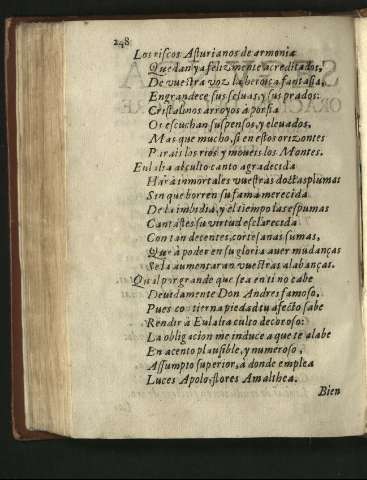 248
Los riscos Asturianos de armonia
Quedan ya felizmente acreditados,
De vuestra voz la heroica fantasia,
Engrandece sus seluas, y sus prados:
Cristalinos arroyos à porfia
Os escuchan suspensos, y eleuados,
Mas que mucho, si en estos orizontes
Parais los rios, y moueis los Montes.
Eulalia al culto canto agradecida
Harà inmortales vuestras doctas plumas
Sin que borren su fama merecida
De la imbidia, y el tiempo las espumas
Cantastes su virtud esclarecida
Con tan decentes, cortesanas sumas,
Que à poder en su gloria auer mudanças
Se la aumentaran vuestras alabanças.
Qual por grande que sea en ti no cabe
Deuidamente Don Andres famoso,
Pues con tierna piedad tu afecto sabe
Rendir à Eulalia culto decoroso:
La obligacion me induce a que te alabe
En acento plausible, y numeroso,
Assumpto superior, à donde emplea
Luces Apolo, flores Amalthea.
Bien